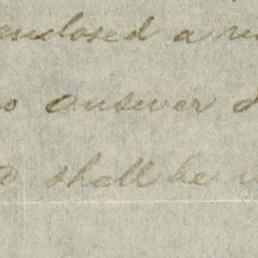 enclosed a
answer
shall be